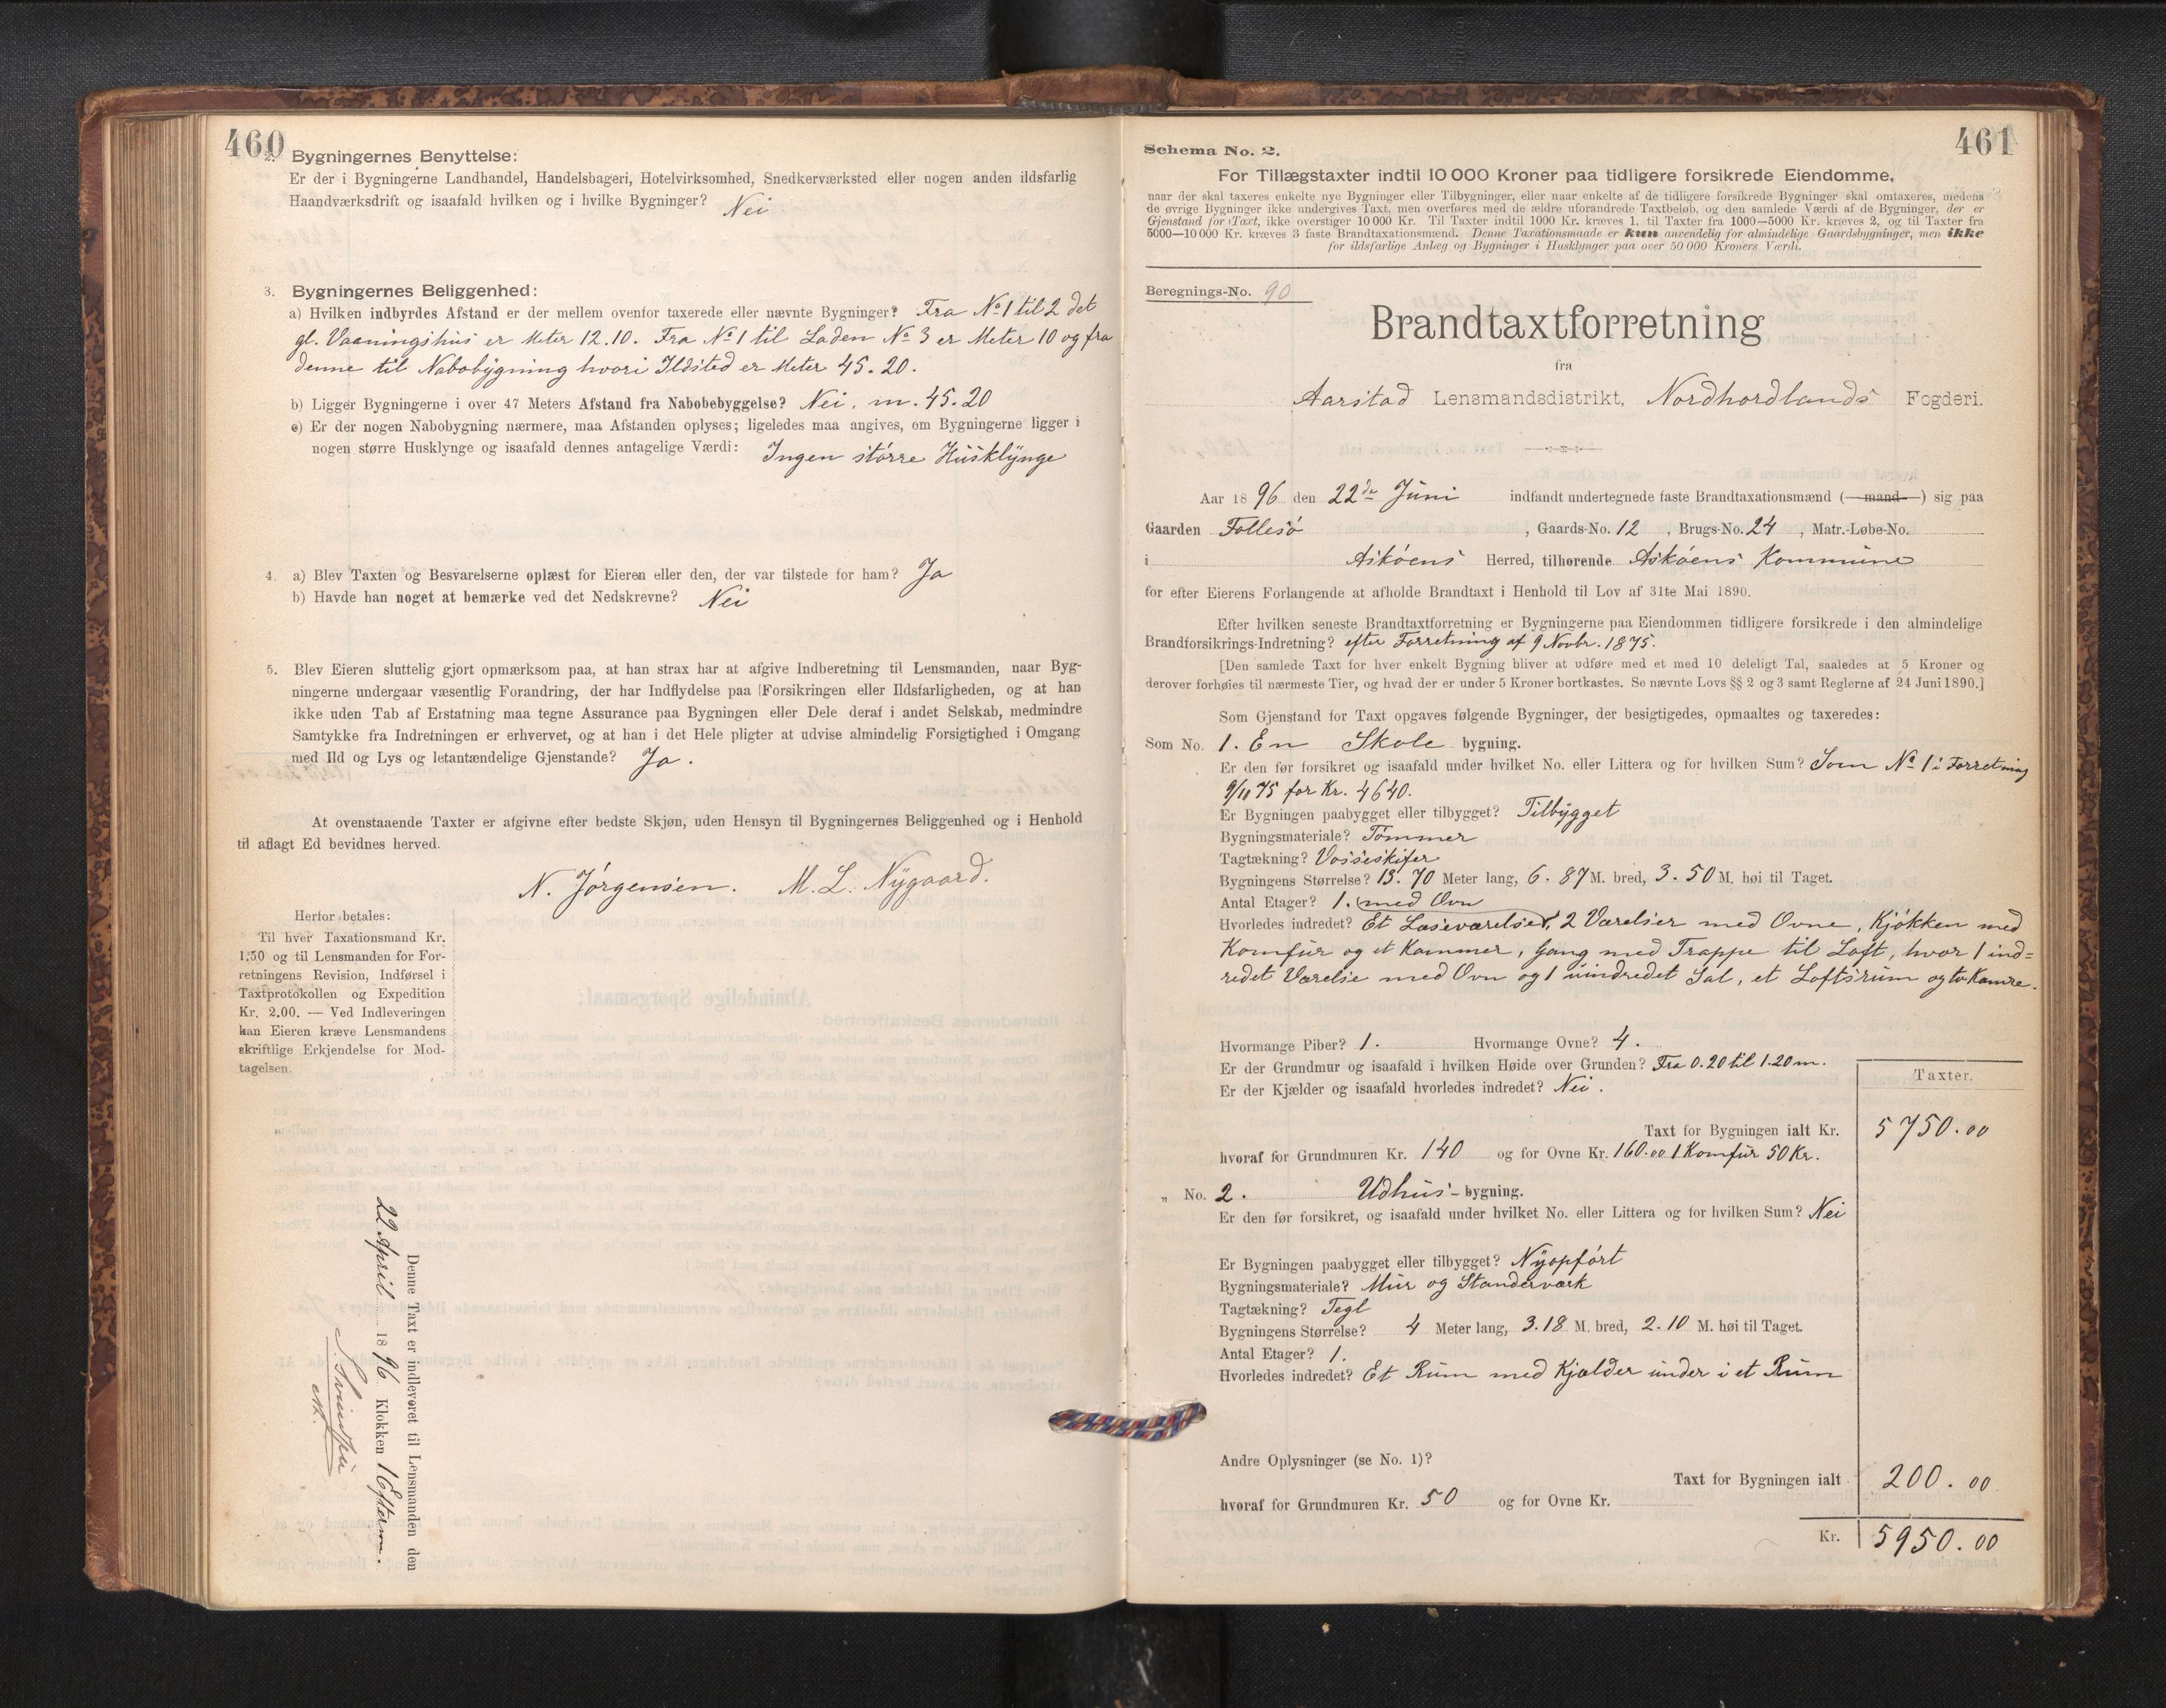 460
2. Bygningernes Benyttelse:
Er der i Bygningerne Landhandel, Handelsbageri, Hotelvirksomhed, Snedkerværksted eller nogen anden ildsfarlig
Haandværksdrift og isaafald hvilken og i hvilke Bygninger? Nei
3. Bygningernes Beliggenhed:
a) Hvilken indbyrdes Afstand er der mellem ovenfor taxerede eller nævnte Bygninger? Fra No 1 til 2 det
gl. Vaaningshus er Meter 12.10. Fra No 1 til Laden No 3 er Meter 10 og fra
denne til Nabobygning hvori Ildsted er Meter 45.20.
b) Ligger Bygningerne i over 47 Meters Afstand fra Nabobebyggelse? Nei. m. 45.20
c) Er der nogen Nabobygning nærmere, maa Afstanden oplyses; ligeledes maa angives, om Bygningerne ligger i
nogen større Husklynge og isaafald dennes antagelige Værdi: Ingen større Husklynge
4. a) Blev Taxten og Besvarelserne oplæst for Eieren eller den, der var tilstede for ham? Ja
b) Havde han noget at bemærke ved det Nedskrevne? Nei
5. Blev Eieren sluttelig gjort opmærksom paa, at han strax har at afgive Indberetning til Lensmanden, naar Byg-
ningerne undergaar væsentlig Forandring, der har Indflydelse paa Forsikringen eller Ildsfarligheden, og at han
ikke uden Tab af Erstatning maa tegne Assurance paa Bygningen eller Dele deraf i andet Selskab, medmindre
Samtykke fra Indretningen er erhvervet, og at han i det Hele pligter at udvise almindelig Forsigtighed i Omgang
med Ild og Lys og letantændelige Gjenstande? Ja.
At ovenstaaende Taxter er afgivne efter bedste Skjøn, uden Hensyn til Bygningernes Beliggenhed og i Henhold
til aflagt Ed bevidnes herved.
N. Jørgensen. M. L. Nygaard.
Herfor betales:
Til hver Taxationsmand Kr.
1.50 og til Lensmanden for For-
retningens Revision, Indførsel i
Taxtprotokollen og Expedition
Kr. 2.00. — Ved Indleveringen
kan Eieren kræve Lensmandens
skriftlige Erkjendelse for Mod-
tagelsen.
Denne Taxt er indleveret til Lensmanden den
22 April 1896 Klokken 1 Efterm.
461
Schema No. 2.
For Tillægstaxter indtil 10 000 Kroner paa tidligere forsikrede Eiendomme,
naar der skal taxeres enkelte nye Bygninger eller Tilbygninger, eller naar enkelte af de tidligere forsikrede Bygninger skal omtaxeres, medens
de øvrige Bygninger ikke undergives Taxt, men overføres med de ældre uforandrede Taxtbeløb, og den samlede Værdi af de Bygninger, der er
Gjenstand for Taxt, ikke overstiger 10 000 Kr. Til Taxter indtil 1000 Kr. kræves 1, til Taxter fra 1000—5000 Kr. kræves 2, og til Taxter fra
5000—10 000 Kr. kræves 3 faste Brandtaxationsmænd. Denne Taxationsmaade er kun anvendelig for almindelige Gaardsbygninger, men ikke
for ildsfarlige Anlæg og Bygninger i Husklynger paa over 50 000 Kroners Værdi.
Beregnings-No. 90
Brandtaxtforretning
fra
Aarstad Lensmandsdistrikt, Nordhordlands Fogderi.
Aar 1896 den 22de Juni indfandt undertegnede faste Brandtaxationsmænd (mand) sig paa
Gaarden Follesø, Gaards-No. 12, Brugs-No. 24, Matr.-Løbe-No.
i Askøens Herred, tilhørende Askøens Kommune
for efter Eierens Forlangende at afholde Brandtaxt i Henhold til Lov af 31te Mai 1890.
Efter hvilken seneste Brandtaxtforretning er Bygningerne paa Eiendommen tidligere forsikrede i den almindelige
Brandforsikrings-Indretning? efter Forretning af 9 Novbr. 1875.
[Den samlede Taxt for hver enkelt Bygning bliver at udføre med et med 10 deleligt Tal, saaledes at 5 Kroner og
derover forhøies til nærmeste Tier, og hvad der er under 5 Kroner bortkastes. Se nævnte Lovs §§ 2 og 3 samt Reglerne af 24 Juni 1890.]
Som Gjenstand for Taxt opgaves følgende Bygninger, der besigtigedes, opmaaltes og taxeredes:
Som No. 1. En Skole bygning.
Er den før forsikret og isaafald under hvilket No. eller Littera og for hvilken Sum? Som No 1 i Forretning
9/11 75 for Kr. 4640.
Er Bygningen paabygget eller tilbygget? Tilbygget
Bygningsmateriale? Tømmer
Tagtækning? Vosseskifer
Bygningens Størrelse? 13.70 Meter lang, 6.87 M. bred, 3.50 M. høi til Taget.
Antal Etager? 1. med Ovn
Hvorledes indredet? Et Læseværelse, 2 Værelser med Ovne, Kjøkken med
Komfur og et Kammer, Gang med Trappe til Loft, hvor 1 ind=
redet Værelse med Ovn og 1 uindredet Sal, et Loftsrum og to Kamre.
Hvormange Piber? 1. Hvormange Ovne? 4.
Er der Grundmur og isaafald i hvilken Høide over Grunden? Fra 0.20 til 1.20 m.
Er der Kjælder og isaafald hvorledes indredet? Nei.
Taxter.
Taxt for Bygningen ialt Kr. 5750.00
hvoraf for Grundmuren Kr. 140 og for Ovne Kr. 160.00 1 Komfur 50 Kr.
„ No. 2. Udhus-bygning.
Er den før forsikret, og isaafald under hvilket No. eller Littera og for hvilken Sum? Nei
Er Bygningen paabygget eller tilbygget? Nyopført
Bygningsmateriale? Mur og Standerværk
Tagtækning? Tegl
Bygningens Størrelse? 4 Meter lang, 3.18 M. bred, 2.10 M. høi til Taget.
Antal Etager? 1.
Hvorledes indredet? Et Rum med Kjælder under i et Rum
Andre Oplysninger (se No. 1)?
Taxt for Bygningen ialt 200.00
hvoraf for Grundmuren Kr. 50 og for Ovne Kr.
Kr. 5950.00